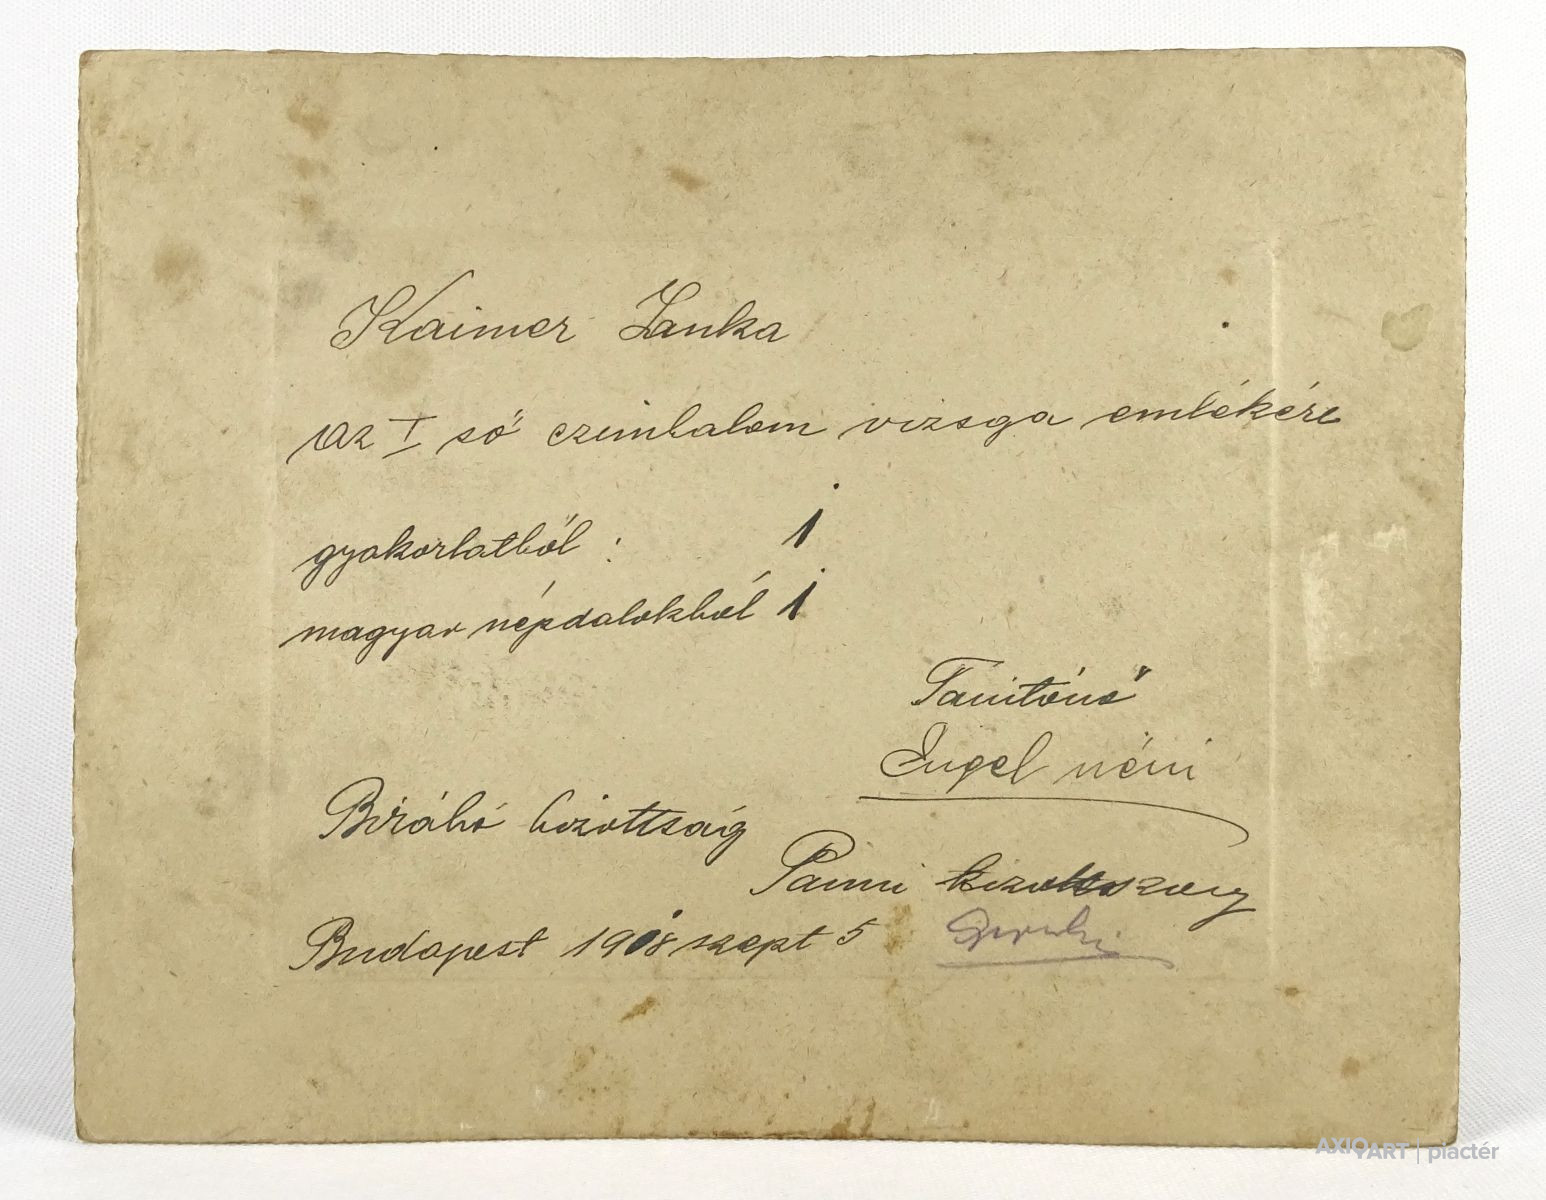 Kaimer Lanka
az I ső czimbalom vizsga emlékére
gyakorlatból : 1
magyar népdalokból 1
Tanitónő
Engel néni
Biráló bizottság
Panni
Budapest 1918 szept 5
AXIOART | piactér